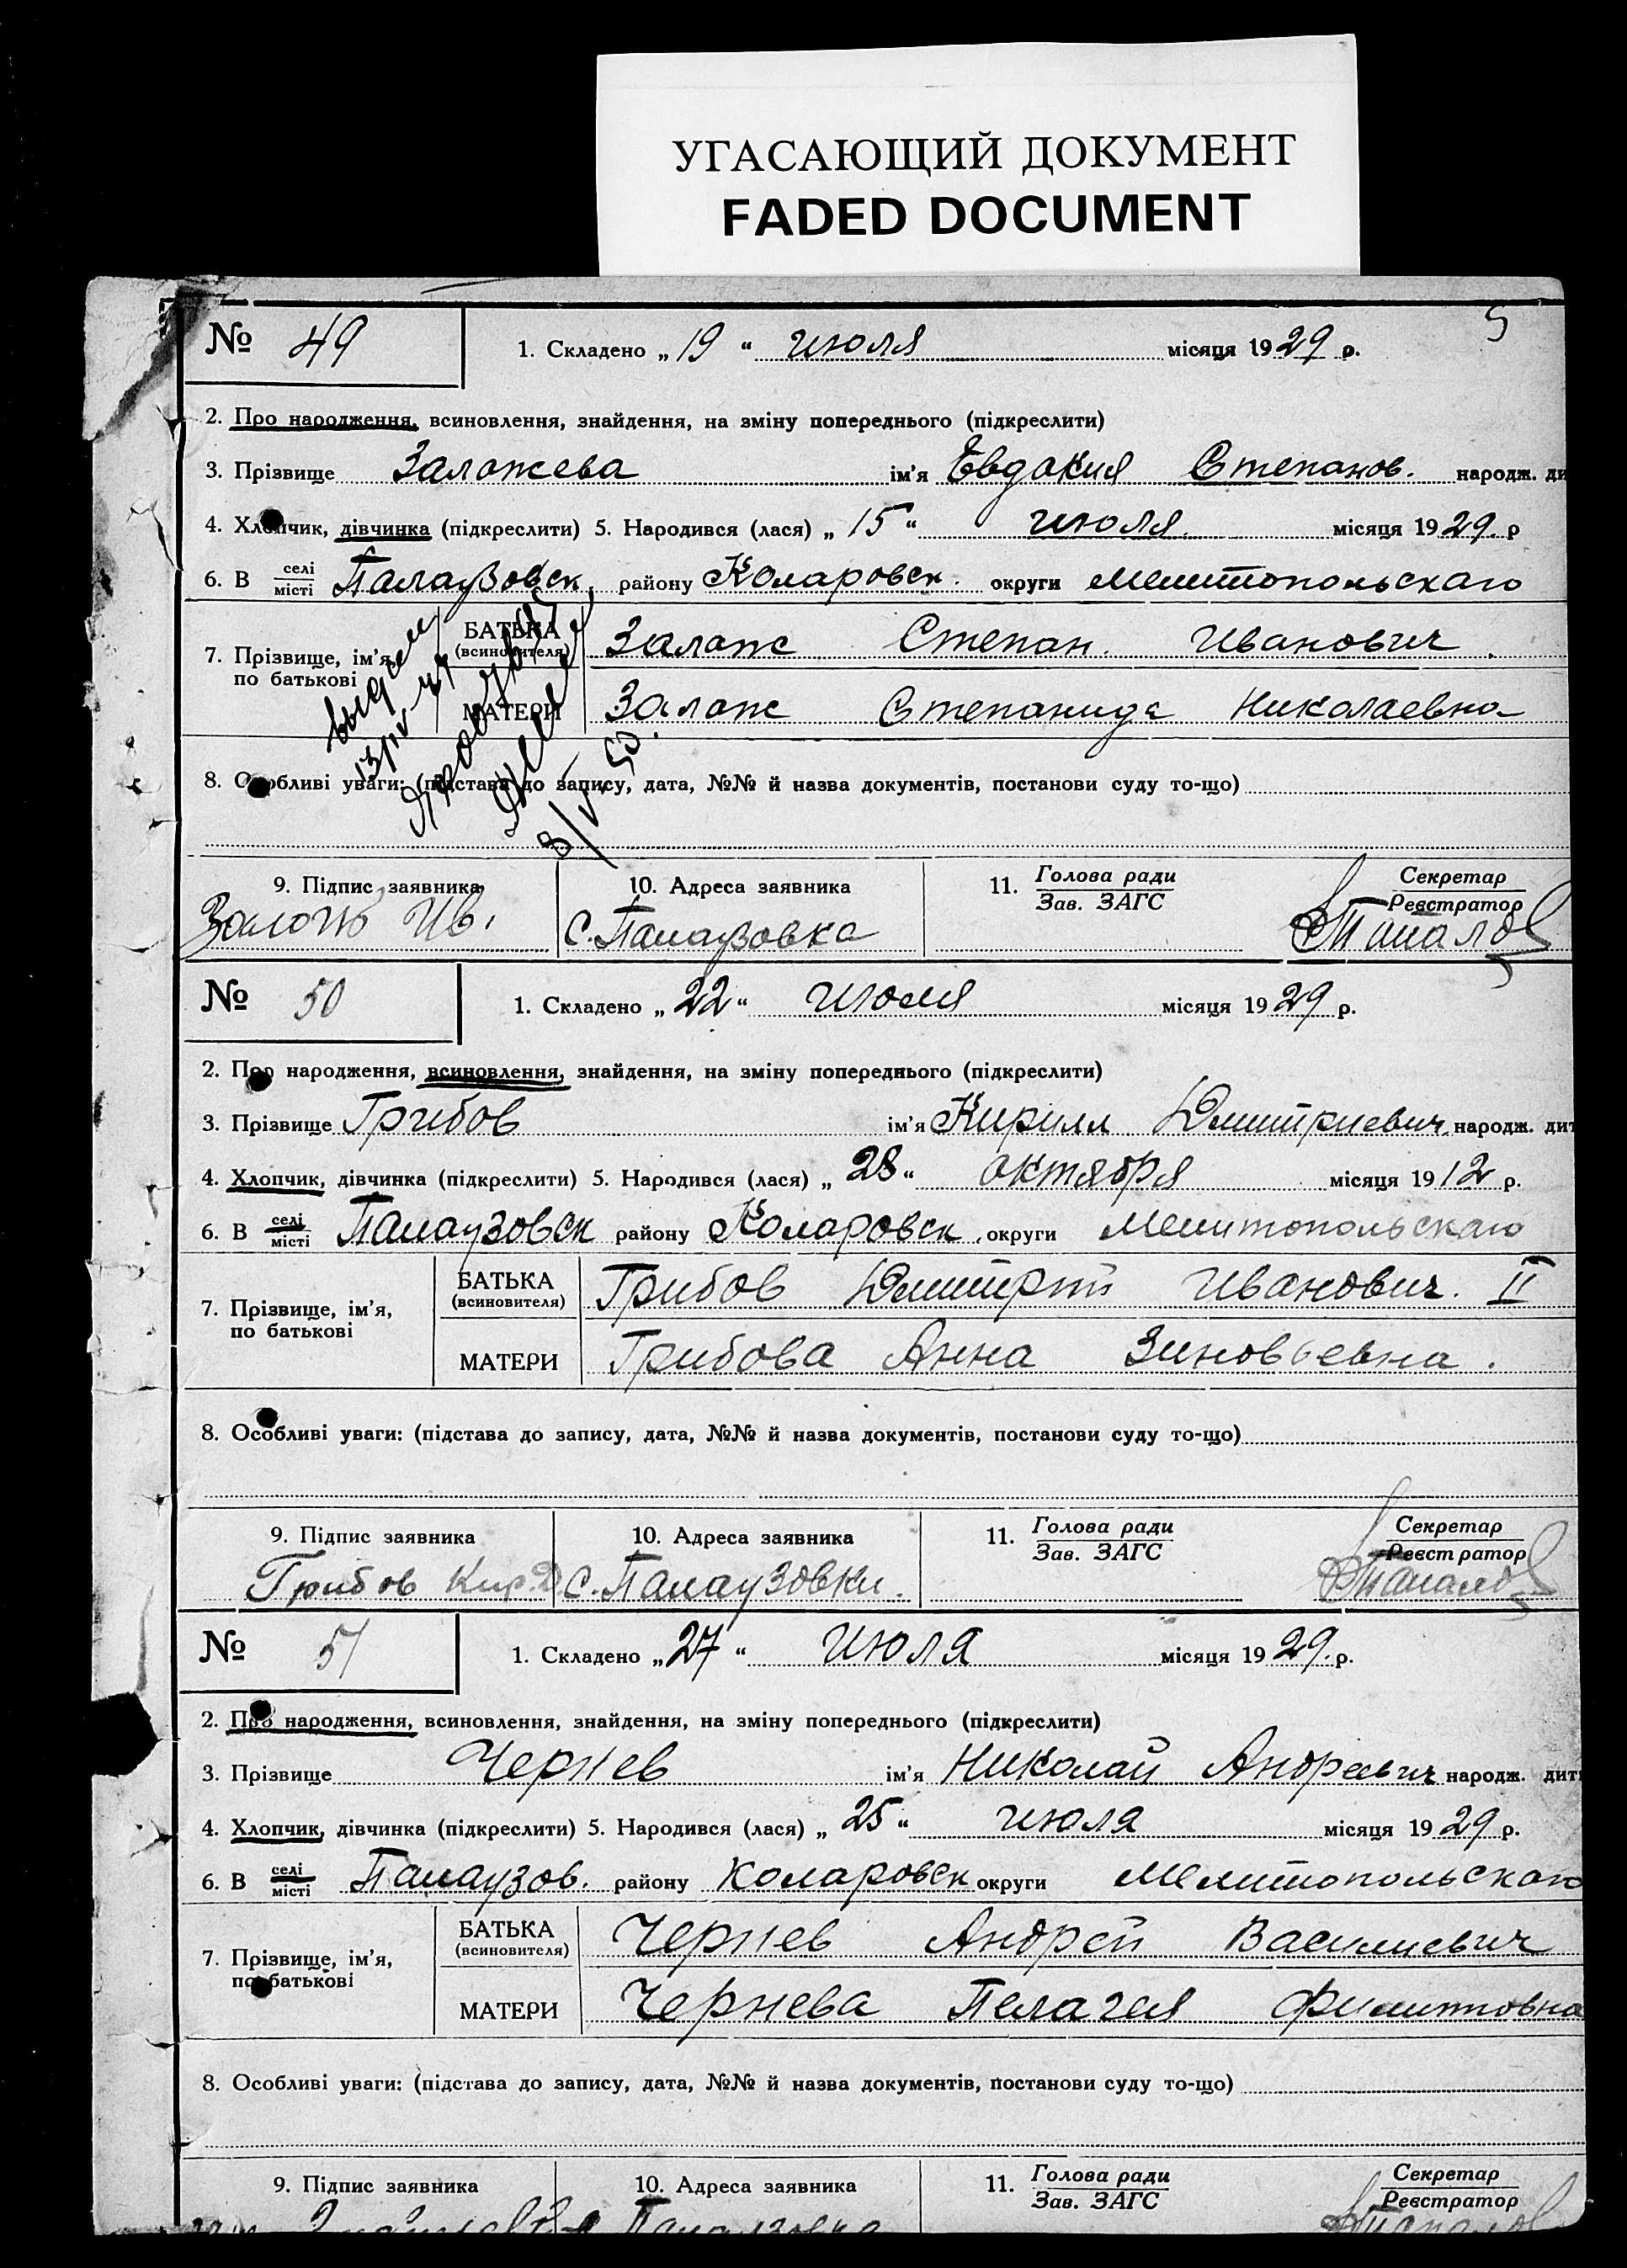 УГАСАЮЩИЙ ДОКУМЕНТ
FADED DOCUMENT
5
№ 49 1. Складено „ 19 “ июля місяця 1929 р.
2. Про народження, всиновлення, знайдення, на зміну попереднього (підкреслити)
3. Прізвище Заложева ім'я Евдокия Степанов. народж. ди
4. Хлопчик, дівчинка (підкреслити) 5. Народився (лася) „ 15 “ июля місяця 1929. р
6. В селі місті Палаузовск. району Коларовск. округи Мелитопольскаго
7. Прізвище, ім'я, по батькові
БАТЬКА (всиновителя) Залож Степан Иванович.
МАТЕРИ Залож Степанида Николаевна
8. Особливі уваги: (підстава до запису, дата, №№ й назва документів, постанови суду то-що)
9. Підпис заявника 10. Адреса заявника 11. Голова ради Зав. ЗАГС Секретар Реєстратор
Ив. С. Палаузовка
№ 50 1. Складено „ 22 “ июля місяця 1929 р.
2. Про народження, всиновлення, знайдення, на зміну попереднього (підкреслити)
3. Прізвище Грибов ім'я Кирилл Дмитриевич. народж. дит
4. Хлопчик, дівчинка (підкреслити) 5. Народився (лася) „ 28 “ октября місяця 1912 р.
6. В селі місті Палаузовск району Коларовск. округи Мелитопольскаго
7. Прізвище, ім'я, по батькові
БАТЬКА (всиновителя) Грибов Дмитрий Иванович. II
МАТЕРИ Грибова Анна Зиновьевна.
8. Особливі уваги: (підстава до запису, дата, №№ й назва документів, постанови суду то-що)
9. Підпис заявника 10. Адреса заявника 11. Голова ради Зав. ЗАГС Секретар Реєстратор
Грибов Кир. Д. с. Палаузовки.
№ 51 1. Складено „ 27 “ июля місяця 1929. р.
2. Про народження, всиновлення, знайдення, на зміну попереднього (підкреслити)
3. Прізвище Чернев ім'я Николай Андреевич народж. дит
4. Хлопчик, дівчинка (підкреслити) 5. Народився (лася) „ 25 “ июля місяця 1929 р.
6. В селі місті Палаузов. району Коларовск округи Мелитопольскаго
7. Прізвище, ім'я, по батькові
БАТЬКА (всиновителя) Чернев Андрей Василиевич
МАТЕРИ Чернева Пелагея Филипповна
8. Особливі уваги: (підстава до запису, дата, №№ й назва документів, постанови суду то-що)
9. Підпис заявника 10. Адреса заявника 11. Голова ради Зав. ЗАГС Секретар Реєстратор
Палаузовка